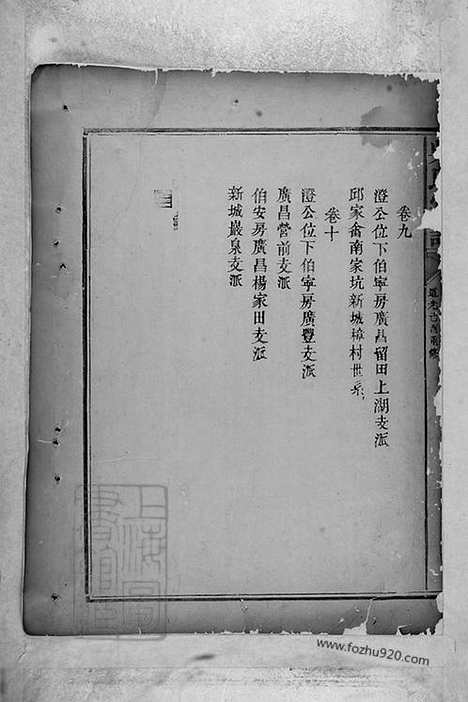 卷九
澄公位下伯寧房廣昌留田上湖支派
邱家畲南家坑新城樟村世系
卷十
澄公位下伯寧房廣豐支派
廣昌營前支派
伯安房廣昌楊家田支派
新城巖泉支派
www.fozhu920.com